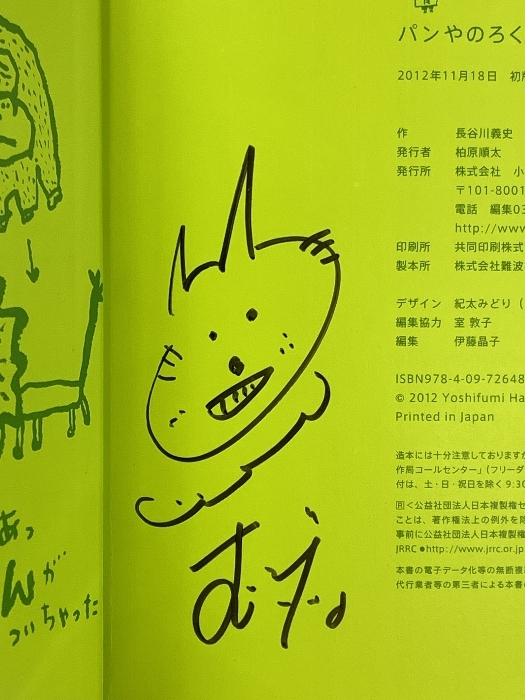 あっ
んが
ついちゃった
パンやのろく
2012年11月18日 初
作 長谷川義史
発行者 柏原順太
発行所 株式会社 小
〒101-8001
電話 編集03
http://www
印刷所 共同印刷株式
製本所 株式会社難波
デザイン 紀太みどり(
編集協力 室 敦子
編集 伊藤晶子
ISBN978-4-09-72648
© 2012 Yoshifumi Ha
Printed in Japan
造本には十分注意しておりますが
作局コールセンター」(フリーダ
付は、土・日・祝日を除く9:30
<公益社団法人日本複製権セ
ことは、著作権法上の例外を除
事前に公益社団法人日本複製権
JRRC●http://www.jrrc.or.jp
本書の電子データ化等の無断複
代行業者等の第三者による本書の